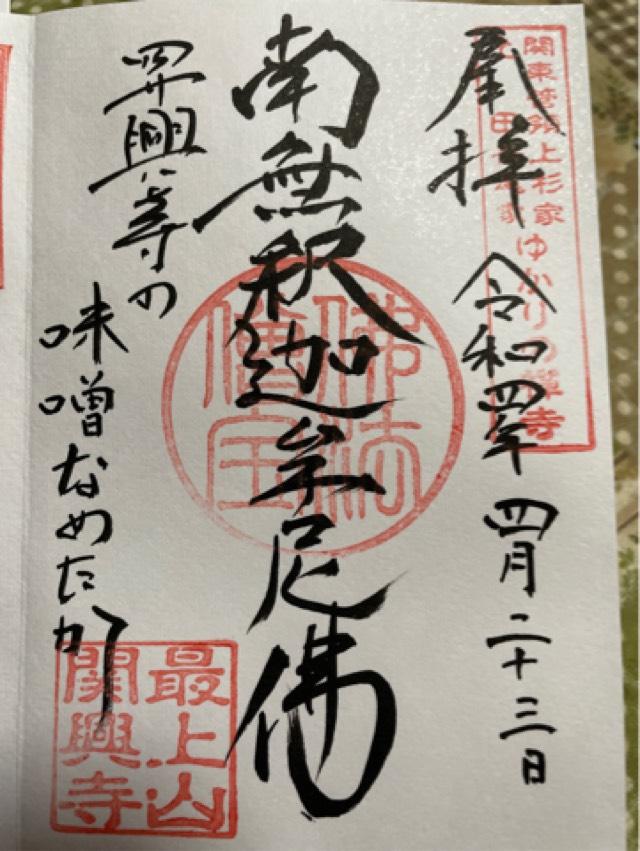 奉拝
令和四年 四月二十三日
関東管領上杉家
ゆかりの禅寺
南無釈迦牟尼佛
佛法
僧宝
関興寺の
味噌なめたか
最上山
関興寺